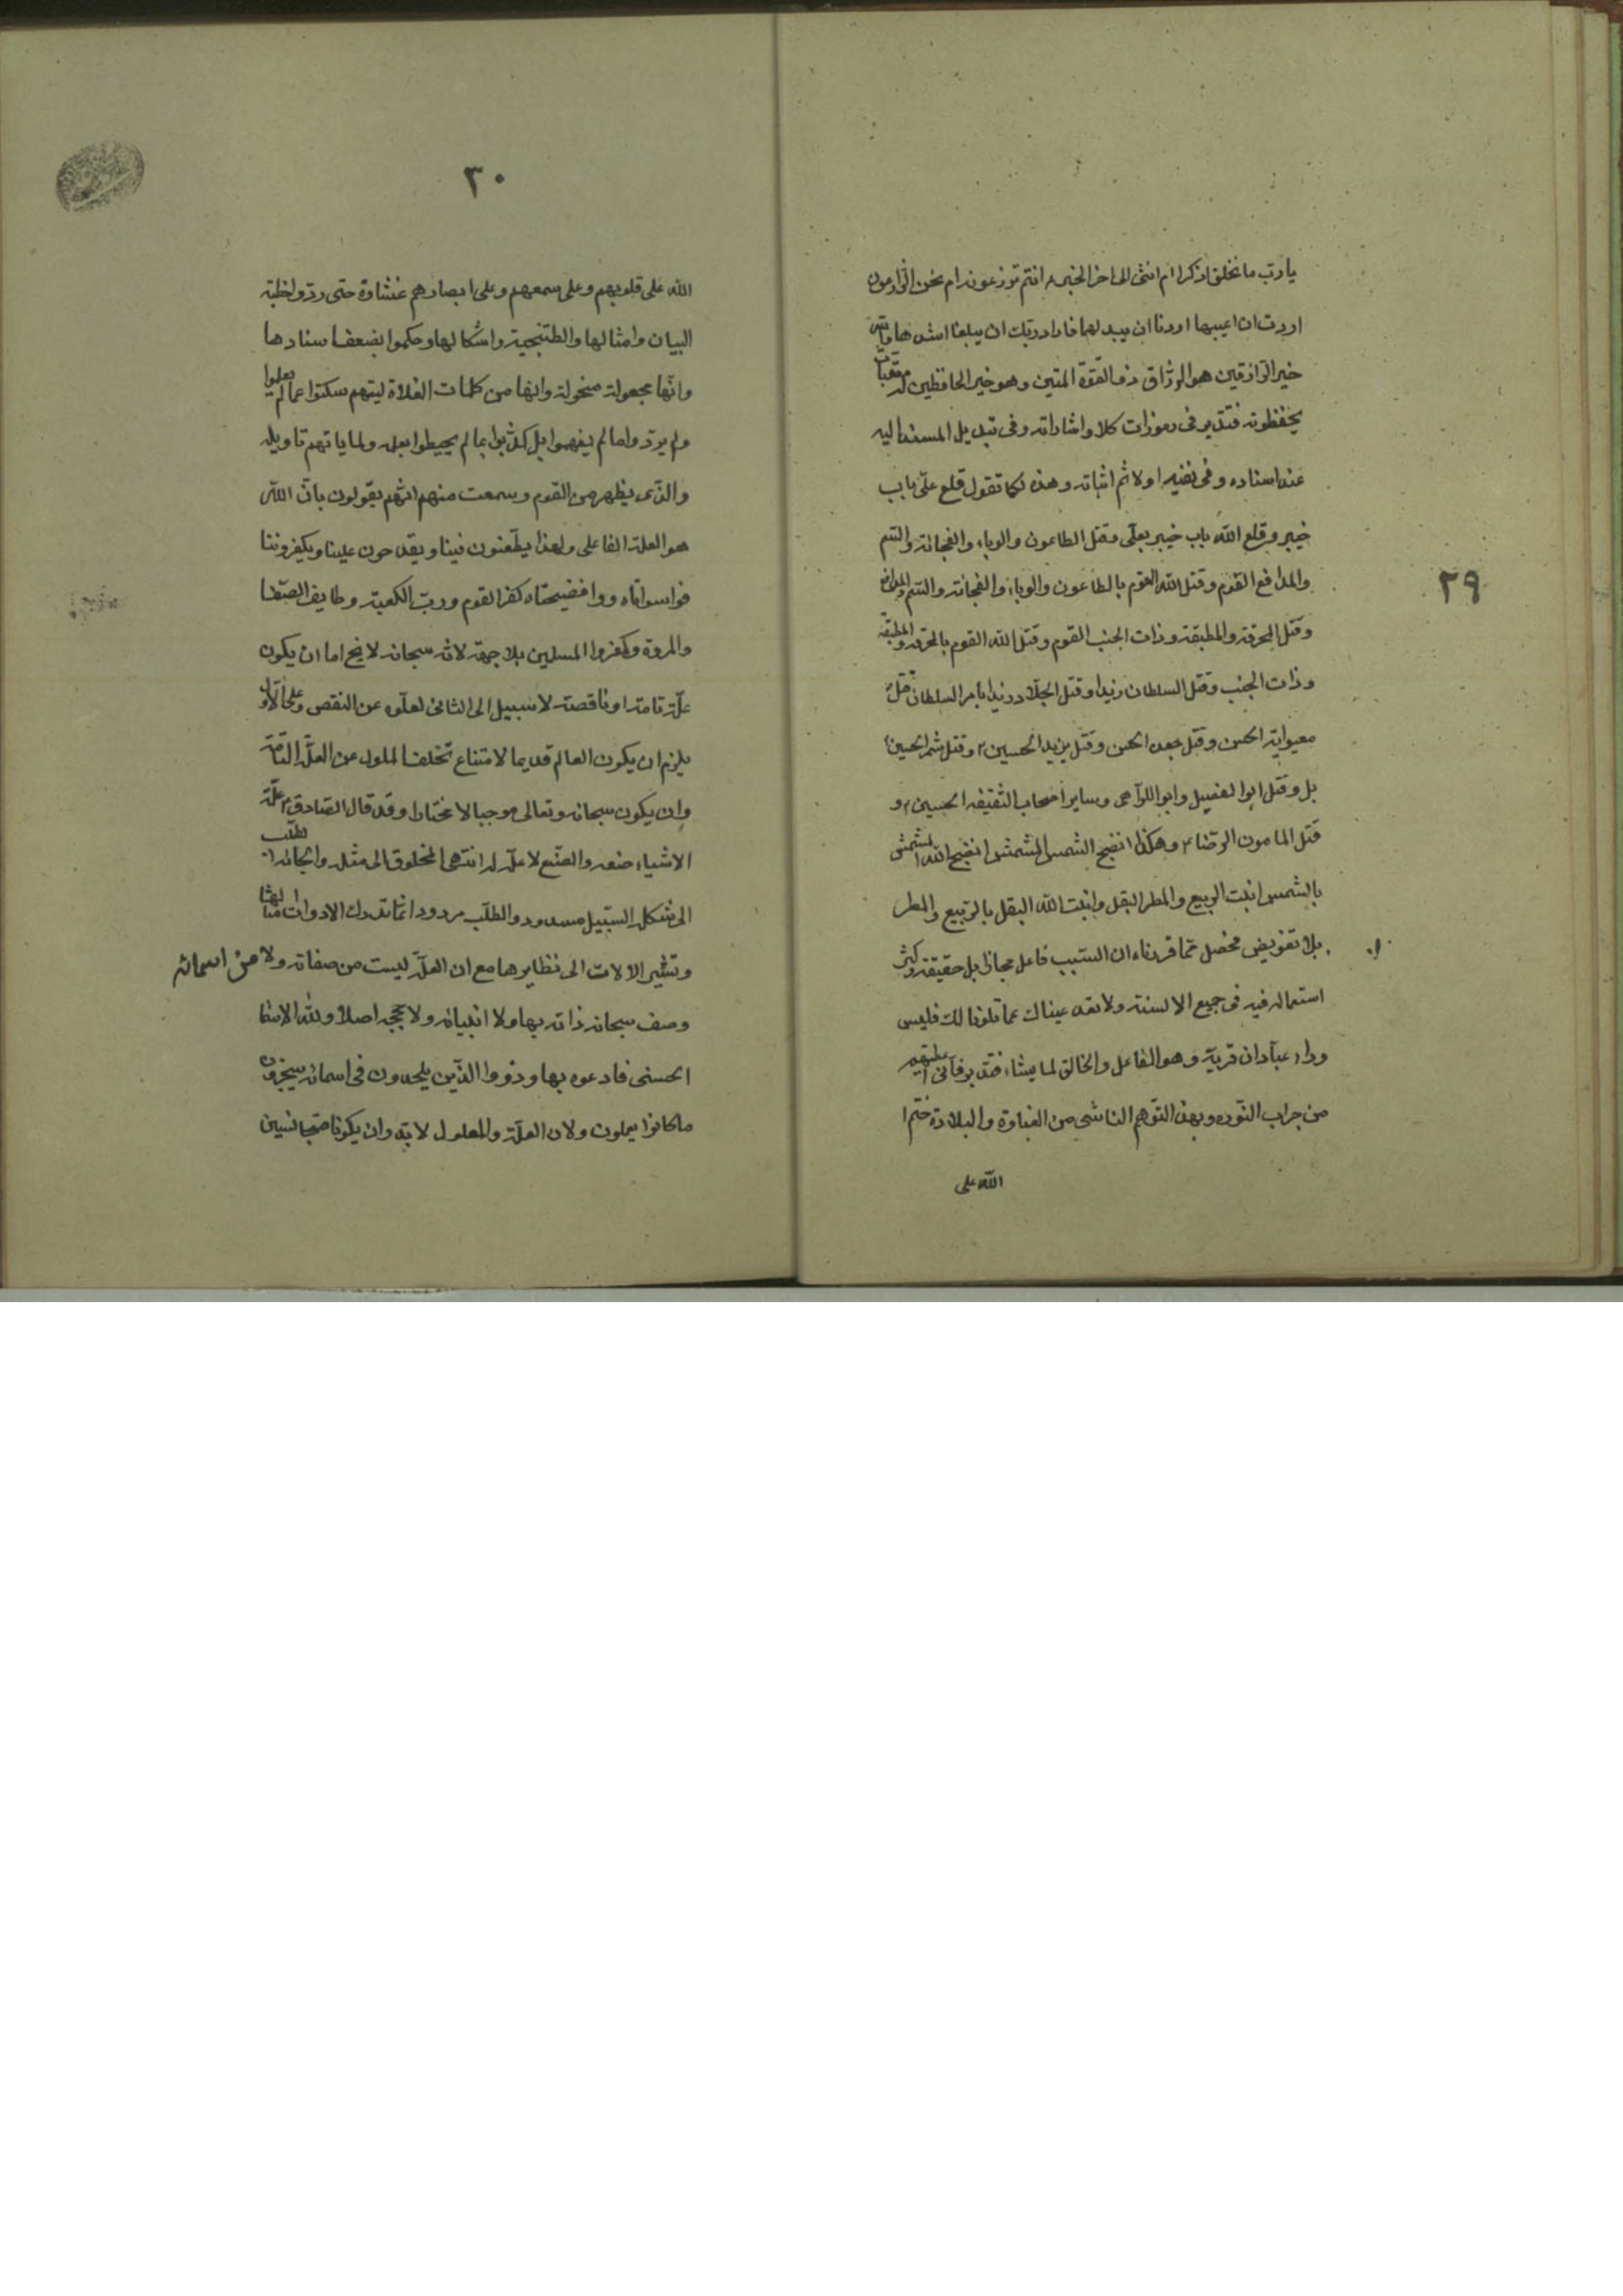 ٢٩
يا رب ما تخلق اذكرا ام انثى الى اخر الخبر ء انتم تزرعونه ام نحن الزارعون
اردت ان اعيبها اردنا ان يبدلهما فاراد ربك ان يبلغا اشدهما والله
خير الرازقين هو الرزاق ذو القوة المتين وهو خير الحافظين له معقبات
يحفظونه فتدبر فى رموزات كلا واشاراته وفى تبديل المسند اليه
عند اسناده وفى نفيه اولا ثم اثباته وهذه كما تقول قلع علىّ باب
خيبر وقلع الله باب خيبر بعلى وقتل الطاعون والوباء والفجائة والسم
والمدافع القوم وقتل الله القوم بالطاعون والوباء والفجائة والسم والمدافع
وقتل المحرقة والمطبقة وذات الجنب القوم وقتل الله القوم بالمحرقة والمطبقة
وذات الجنب وقتل السلطان زيدا وقتل الجلاد زيدا بامر السلطان قتل
معيوية الحسن وقتل جعدة الحسن وقتل يزيد الحسين ع وقتل شمر الحسين
بل وقتل ابوا لفصيل وابو اللواهى وساير اصحاب السقيفه الحسين ع و
قتل المامون الرضا ع وهكذا انضج الشمس المشمش انضج الله المشمش
بالشمس انبت الربيع والمطر البقل وانبت الله البقل بالربيع والمطر
بلا تفويض محصل مما قررناه ان السبب فاعل مجازا بل حقيقة وكثر
استعماله فيه فى جميع الالسنة ولا تعد عيناك عما تلونا لك فليس
وراء عبادان قرية وهو الفاعل والخالق لما يشاء فتدبر فانى اعطيتهم
من جراب النوره وبهذا التوهم الناشى من الغباوة والبلادة ختم
الله على
٣٠
الله على قلوبهم وعلى سمعهم وعلى ابصارهم غشاوة حتى ردوا خطبة
البيان وامثالها والطتنجية واشكالها وحكموا بضعف اسنادها
وانها مجعولة منحولة وانها من كلمات الغلاة ليتهم سكتوا عما لم يعلموا
ولم يردوا ما لم يفهموا بل كذبوا بما لم يحيطوا بعلمه ولما ياتهم تاويله
والذى يظهر من القوم وسمعت منهم انهم يقولون بان الله
هو العلة الفاعلى ولهذا يطعنون فينا ويقدحون علينا ويكفروننا
فواسواتاه ووافضيحتاه كفر القوم ورب الكعبة وطايف الصفا
والمروة وكفروا المسلمين بلا جهة لانه سبحانه لا يخ اما ان يكون
علة تامة او ناقصة لا سبيل الى الثانى لعلوه عن النقص وعلى الاول
يلزم ان يكون العالم قديما لامتناع تخلف المعلول عن العلة التامة
وان يكون سبحانه وتعالى موجبا لا مختارا وقد قال الصادق ع علة
الاشياء صنعه والصنع لا علة له انتهى المخلوق الى مثله والجائه الطلب
الى شكله السبيل مسدود والطلب مردود انما تدرك الادوات امثالها
وتشير الالات الى نظايرها مع ان العلة ليست من صفاته ولا من اسمائه
وصف سبحانه ذاته بها ولا انبيائه ولا حججه اصلا ولله الاسماء
الحسنى فادعوه بها وذروا الذين يلحدون فى اسمائه سيجزون
ما كانوا يعملون ولان العلة والمعلول لابد وان يكونا متجانسين